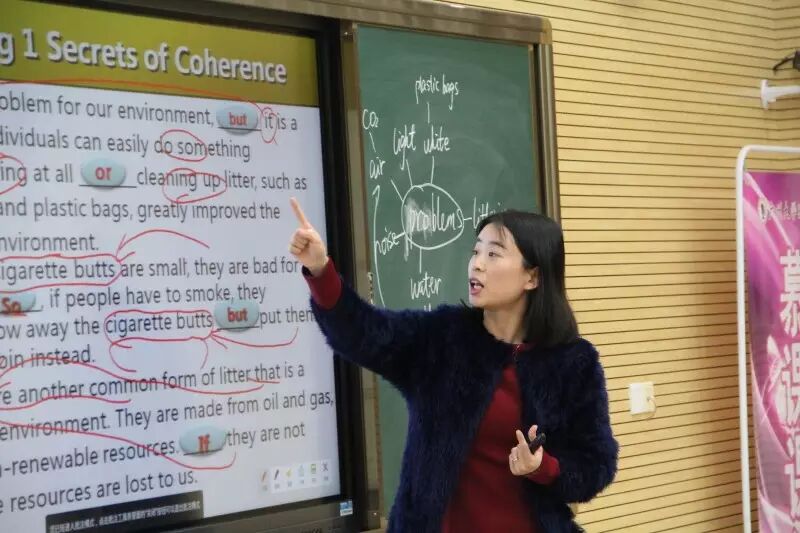 g 1 Secrets of Coherence
oblem for our environment, but it is a
dividuals can easily do something
ing at all or cleaning up litter, such as
and plastic bags, greatly improved the
nvironment.
igarette butts are small, they are bad for
So, if people have to smoke, they
ow away the cigarette butts but put them
bin instead.
re another common form of litter that is a
environment. They are made from oil and gas,
n-renewable resources. If they are not
e resources are lost to us.
plastic bags
CO2
light
white
air
problems
noise
water